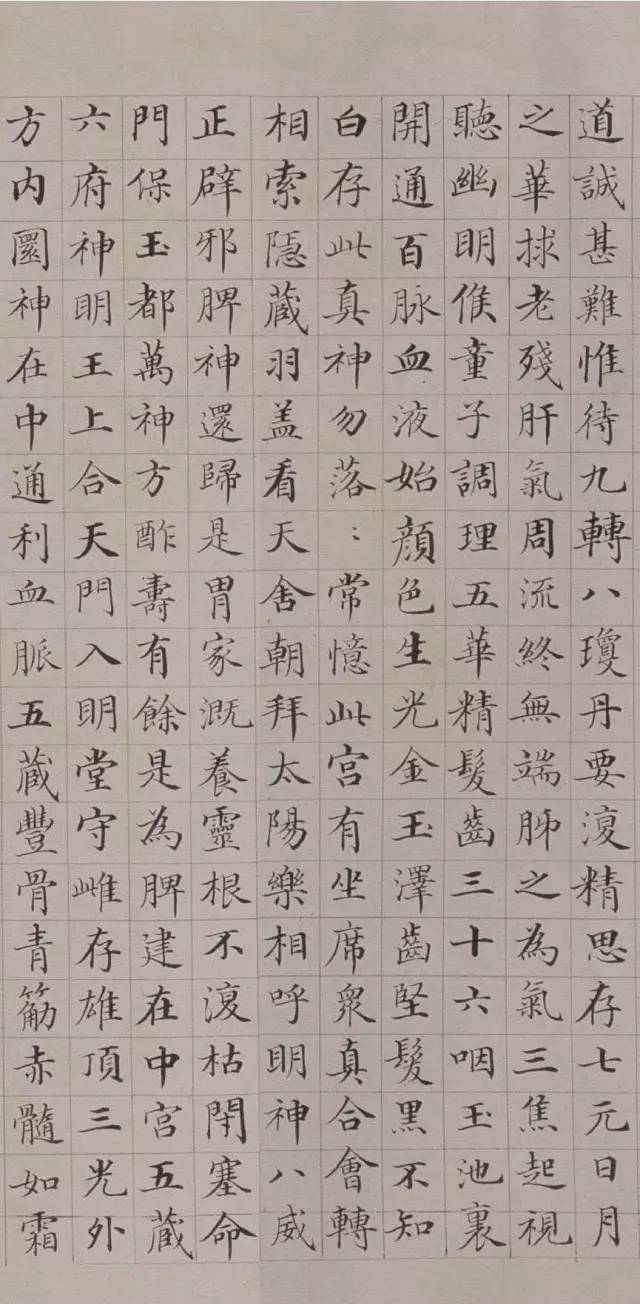 道誠甚難惟待九轉八瓊丹要復精思存七元日月
之華捄老殘肝氣周流終無端肺之為氣三焦起視
聽幽明候童子調理五華精髮齒三十六咽玉池裏
開通百脉血液始顔色生光金玉澤齒堅髮黑不知
白存此真神勿落〻常憶此宮有坐席衆真合會轉
相索隱藏羽盖看天舍朝拜太陽樂相呼明神八威
正辟邪脾神還歸是胃家溉養靈根不復枯閇塞命
門保玉都萬神方酢壽有餘是為脾建在中宮五藏
六府神明王上合天門入明堂守雌存雄頂三光外
方内圓神在中通利血脈五藏豐骨青筋赤髓如霜